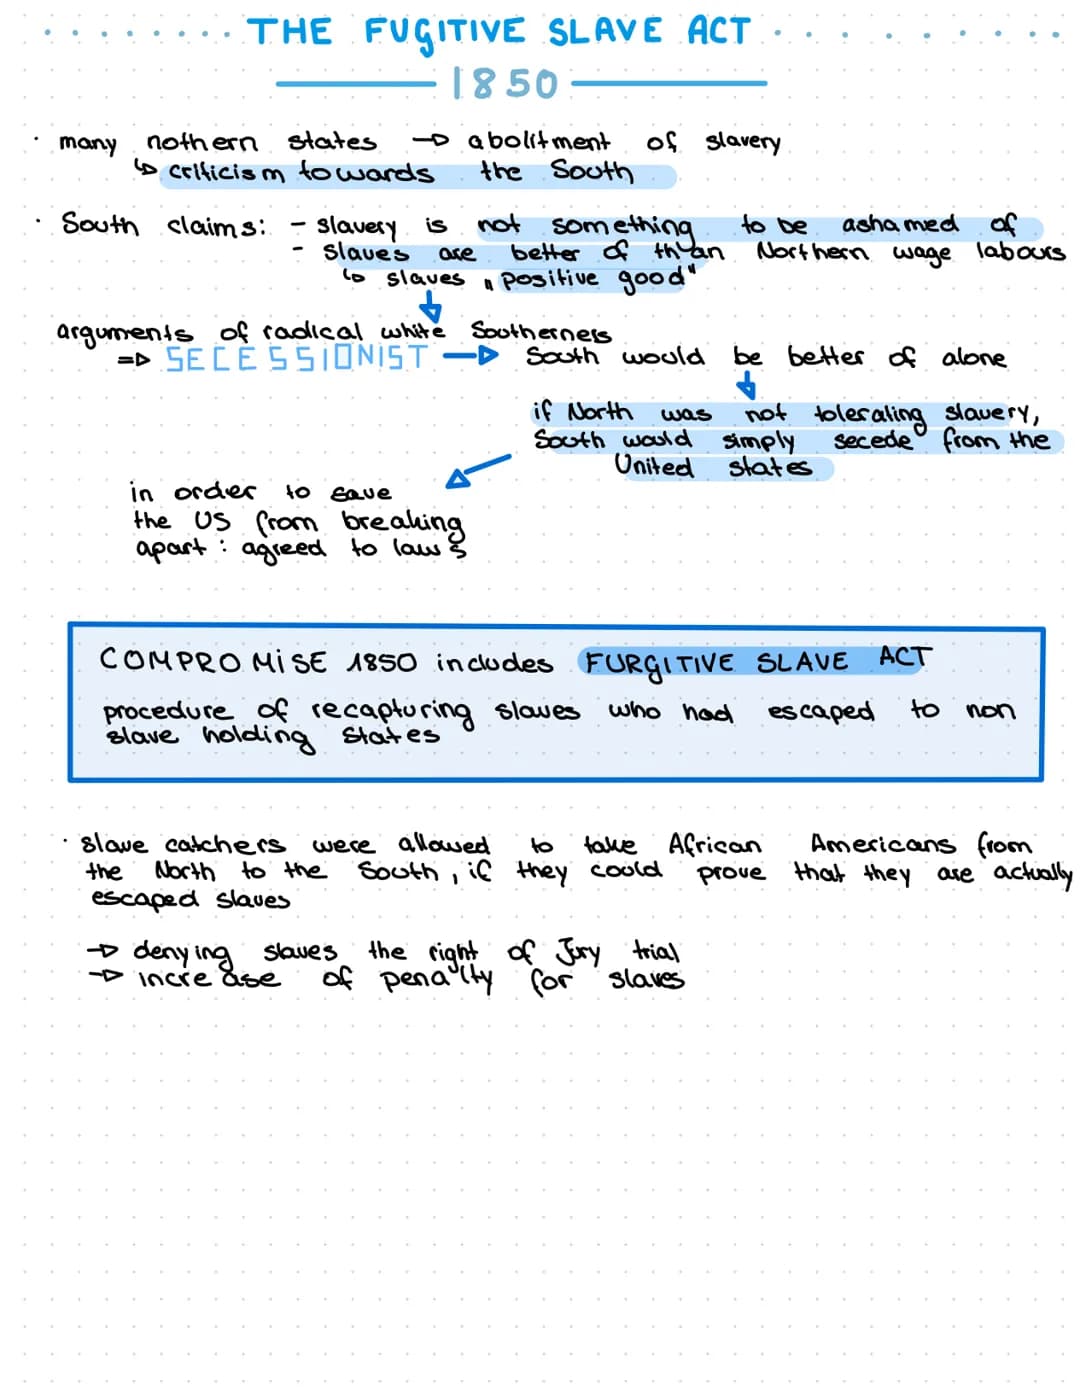 THE FUGITIVE SLAVE ACT
1850
· many nothern states → abolitment of slavery
↳ criticism towards the South
· South claims: - slavery is not something to be ashamed of
- slaves are better of than Northern wage labours
↳ slaves „positive good"
arguments of radical white Southerners
=> SECESSIONIST → South would be better of alone
if North was not tolerating slavery,
South would simply secede from the
United states
in order to save
the US from breaking
apart : agreed to laws
COMPROMISE 1850 includes FURGITIVE SLAVE ACT
procedure of recapturing slaves who had escaped to non
slave holding States
· slave catchers were allowed to take African Americans from
the North to the South, if they could prove that they are actually
escaped slaves
→ denying slaves the right of Jury trial
→ increase of penality for slaves